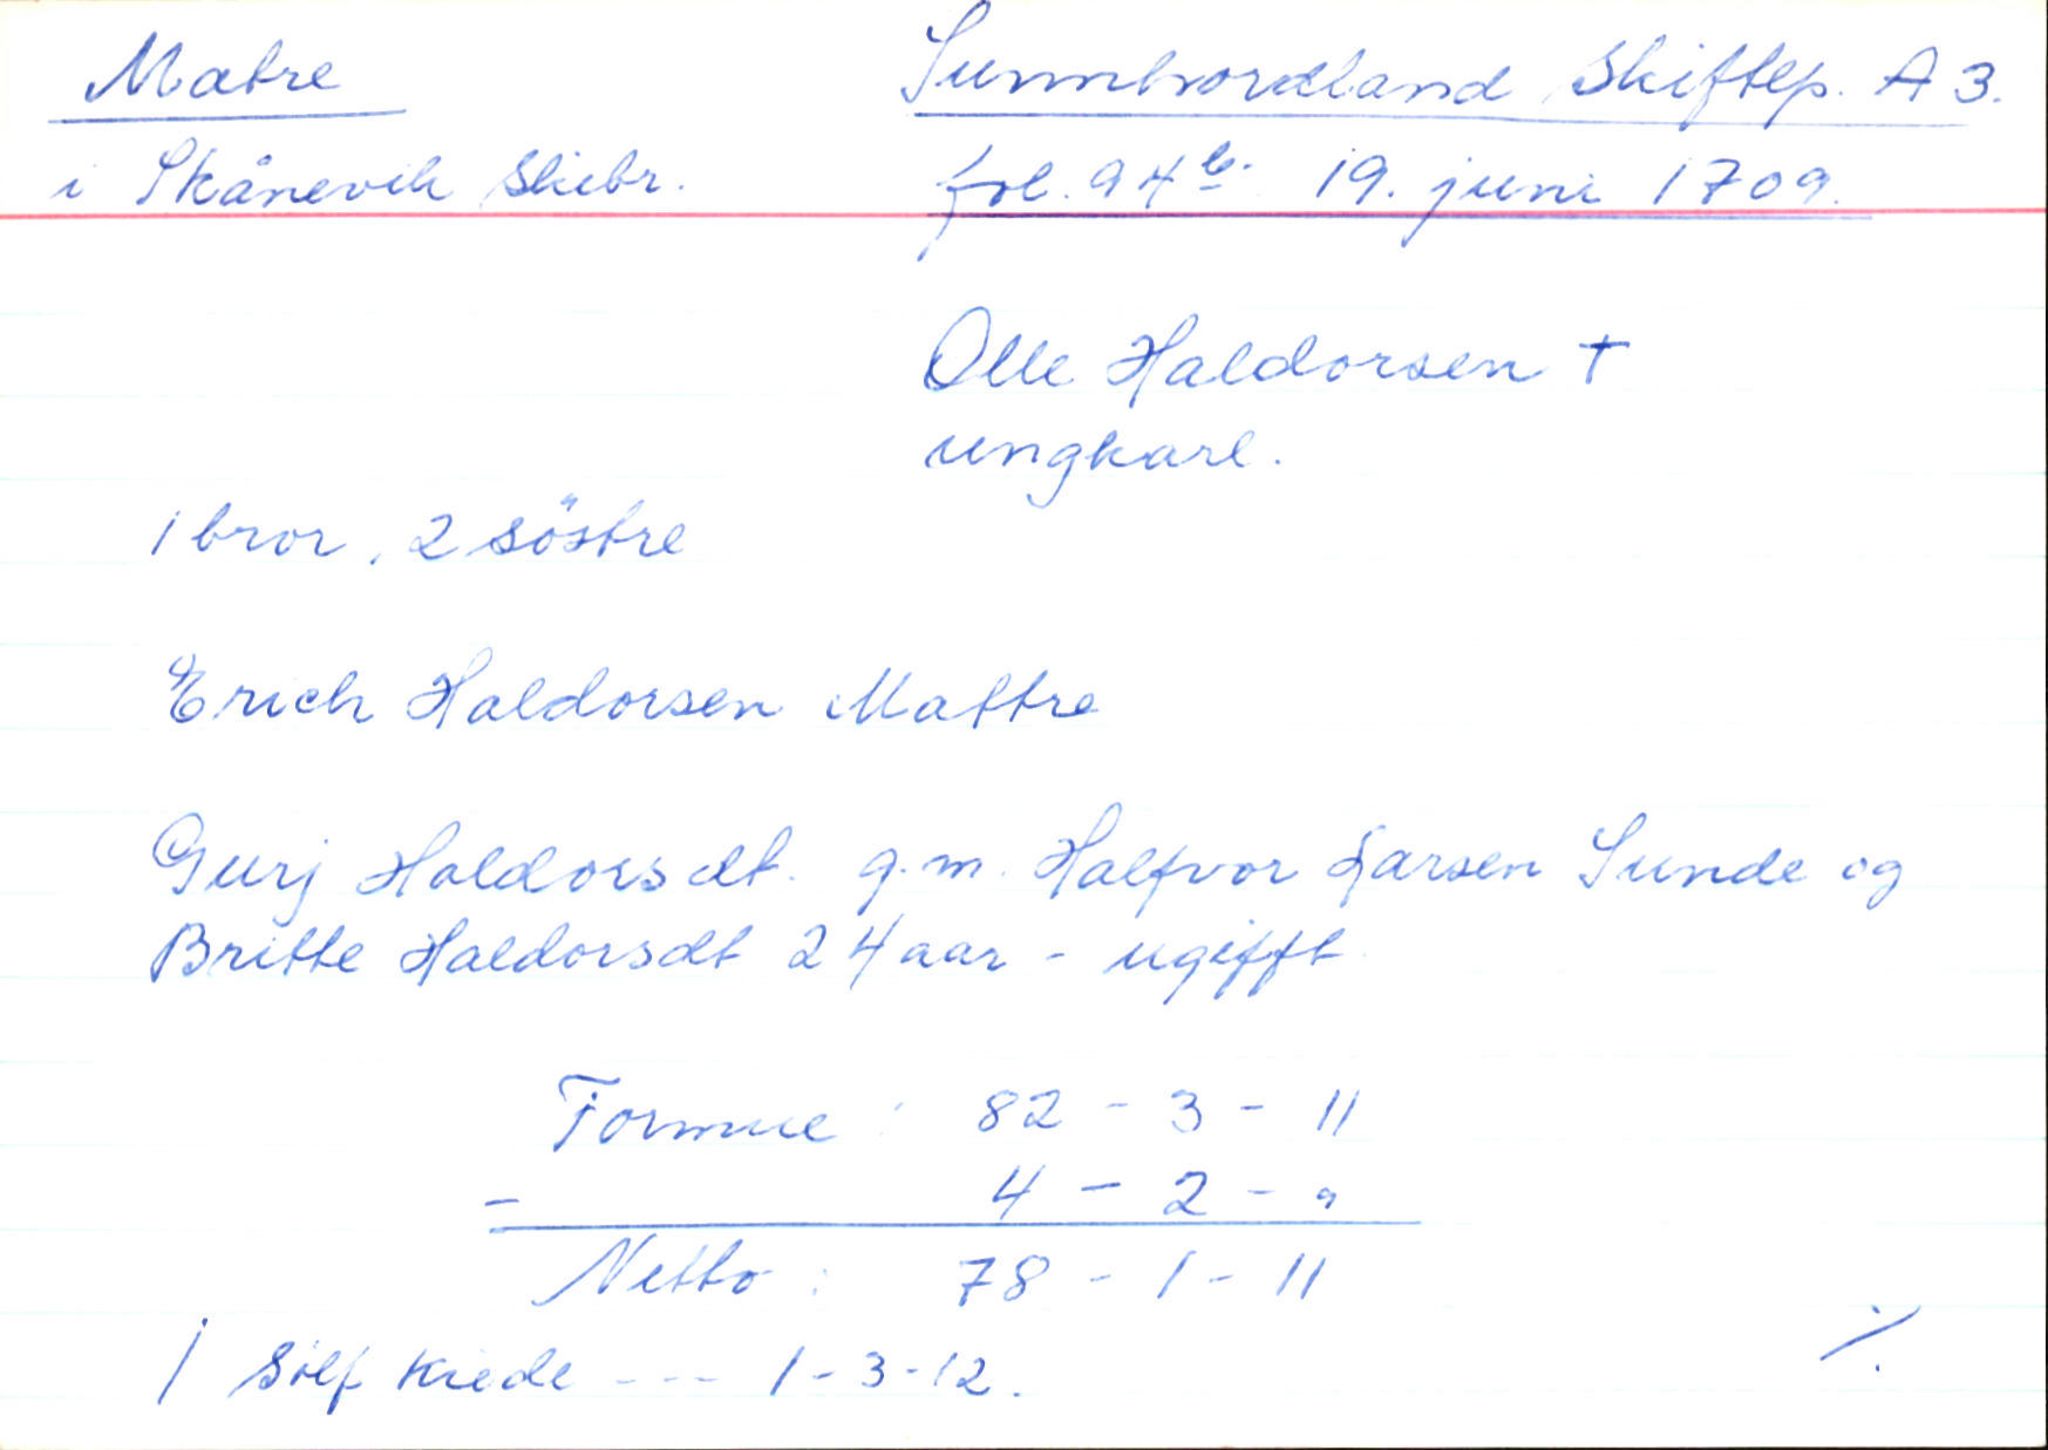 Matre
Sunnhordland Skiftep. A 3.
i Skånevik Skibr.
fol. 94 b. 19. juni 1709.
Olle Haldorsen †
ungkarl.
1 bror, 2 söstre
Erich Haldorsen Mattre
Gurj Haldorsdt. g.m. Halfvor Larsen Sunde og
Britte Haldorsdt 24 aar - ugifft
Formue : 82 - 3 - 11
- 4 - 2 - "
Netto : 78 - 1 - 11
1 Sölf Kiede --- 1 - 3 - 12.
./.